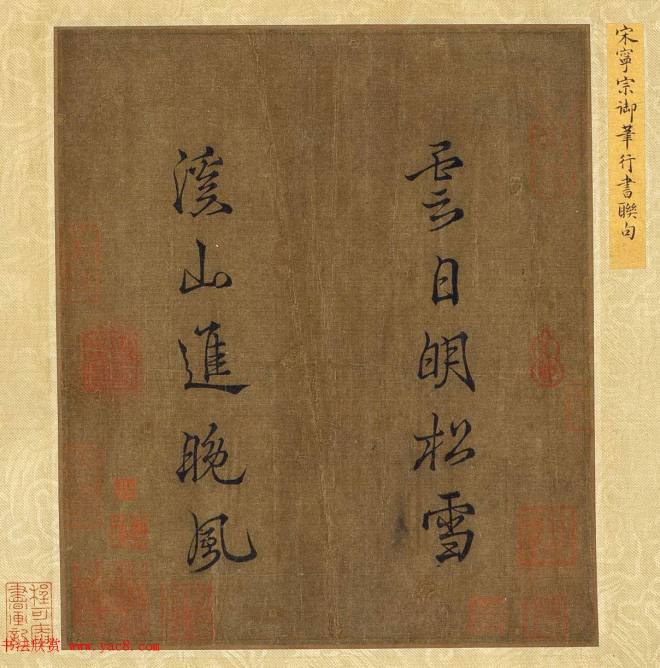 宋寧宗御筆行書聯句
雲日明松雪
溪山進晚風
書法欣赏 www.yac8.com